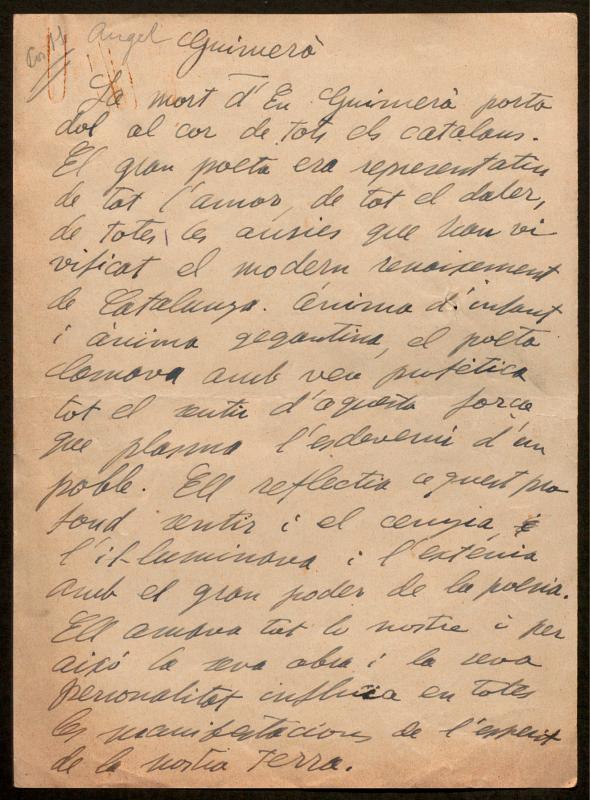 Angel Guimerà
La mort d'En Guimerà porta
dol al cor de tots els catalans.
El gran poeta era representatiu
de tot l'amor, de tot el daler,
de totes les ansies que han vi
vificat el modern renaixement
de Catalunya. Ànima d'infant
i ànima gegantina, el poeta
clamava amb veu profètica
tot el sentir d'aquesta força
que plasma l'esdevenir d'un
poble. Ell reflectia aquest pro
fond sentir i el
l'il-luminava i l'extenia
amb el gran poder de la poesia.
Ell amava tot lo nostre i per
aixó la seva obra i la seva
personalitat influia en totes
les manifestacions de l'esperit
de la nostra Terra.